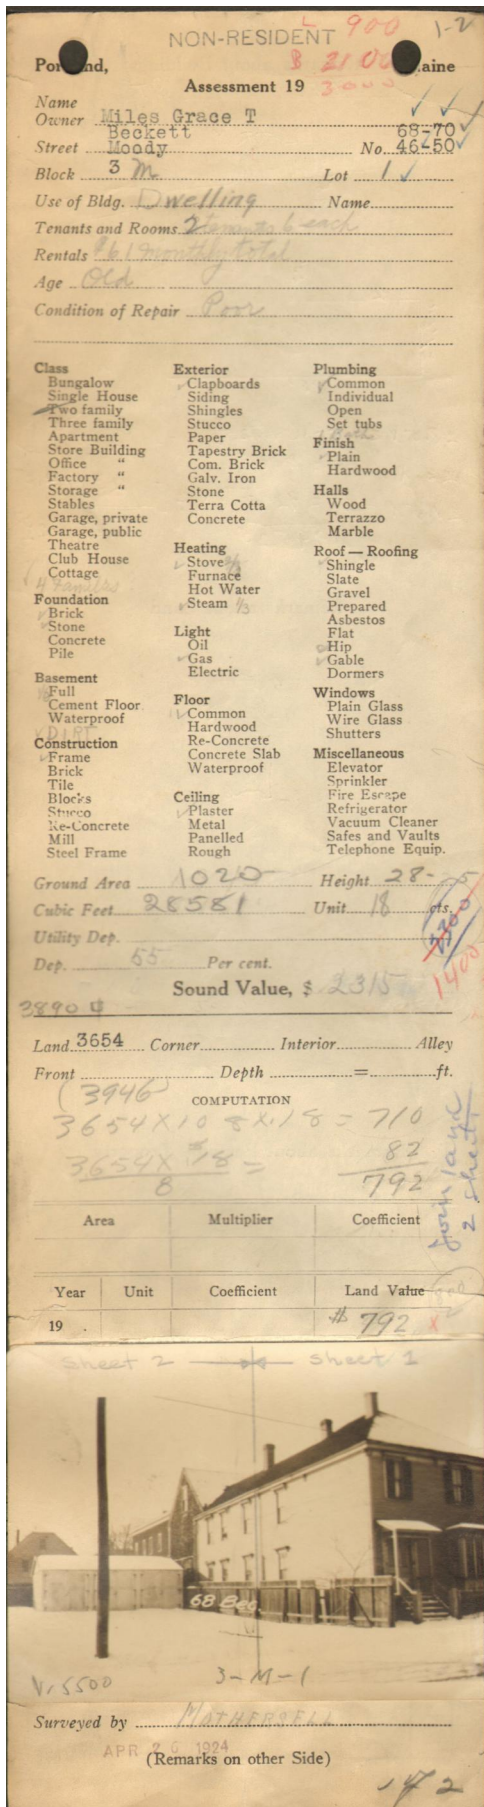 NON-RESIDENT
L 900
1-2
B 2100
3000
Portland, Maine
Assessment 19
Name
Owner Miles Grace T
Beckett 68-70
Street Moody No. 46-50
Block 3 M Lot 1
Use of Bldg. Dwelling Name
Tenants and Rooms 2 tenants 6 each
Rentals $61 monthly total
Age Old
Condition of Repair Poor
Class
Bungalow
Single House
Two family
Three family
Apartment
Store Building
Office "
Factory "
Storage "
Stables
Garage, private
Garage, public
Theatre
Club House
Cottage
4 Families
Foundation
Brick
Stone
Concrete
Pile
Basement
Full
Cement Floor
Waterproof
DIRT
Construction
Frame
Brick
Tile
Blocks
Stucco
Re-Concrete
Mill
Steel Frame
Exterior
Clapboards
Siding
Shingles
Stucco
Paper
Tapestry Brick
Com. Brick
Galv. Iron
Stone
Terra Cotta
Concrete
Heating
Stove 2/3
Furnace
Hot Water
Steam 1/3
Light
Oil
Gas
Electric
Floor
Common
Hardwood
Re-Concrete
Concrete Slab
Waterproof
Ceiling
Plaster
Metal
Panelled
Rough
Plumbing
Common
Individual
Open
Set tubs
1 Bath
Finish
Plain
Hardwood
Halls
Wood
Terrazzo
Marble
Roof — Roofing
Shingle
Slate
Gravel
Prepared
Asbestos
Flat
Hip
Gable
Dormers
Windows
Plain Glass
Wire Glass
Shutters
Miscellaneous
Elevator
Sprinkler
Fire Escape
Refrigerator
Vacuum Cleaner
Safes and Vaults
Telephone Equip.
Ground Area 1020 Height 28-
Cubic Feet 28581 Unit 18 cts.
Utility Dep.
Dep. 55 Per cent.
2300
1400
Sound Value, $ 2315
3890
Land 3654 Corner Interior Alley
Front Depth = ft.
(3946)
COMPUTATION
3654 X 108 X .18 = 710
3654 X .18 = 82
8 792
Join layd
2 sheets
Area Multiplier Coefficient
Year Unit Coefficient Land Value
19 . $ 792 x
Sheet 2 Sheet 1
68 Bec.
V.5500
3-M-1
Surveyed by MOTHERSELL
APR 26 1924
(Remarks on other Side)
172